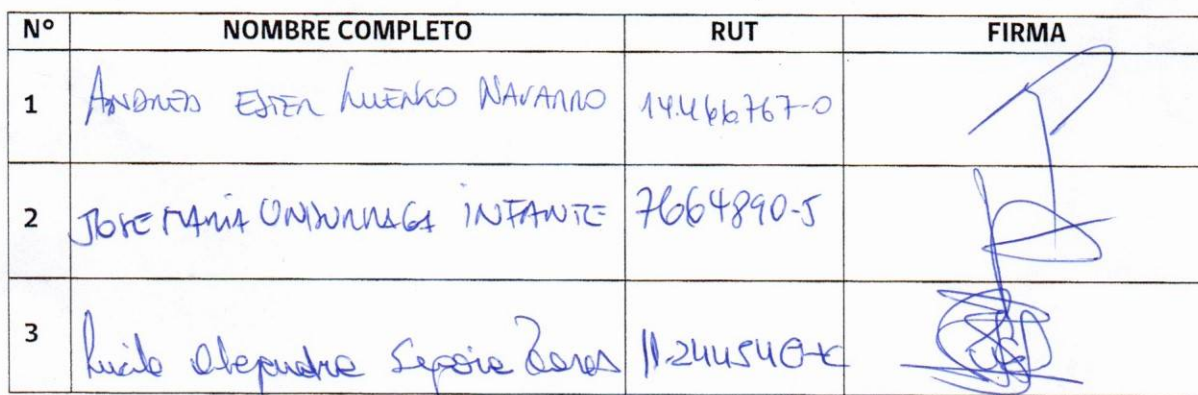 Nº NOMBRE COMPLETO RUT FIRMA
1 ANDREA ESTER LUENGO NAVARRO 14.466.767-0
2 JOSE MARIA UNDURRAGA INFANTE 7664890-5
3 Lucila Alejandra